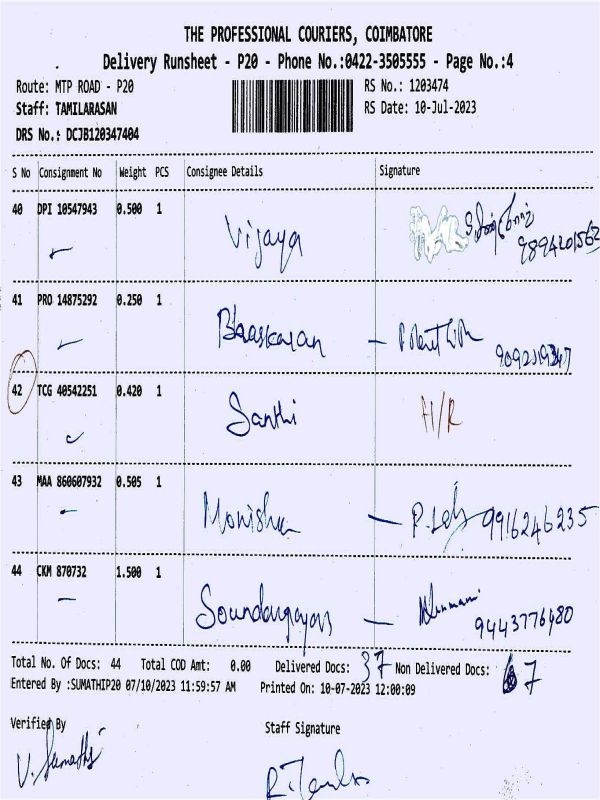 THE PROFESSIONAL COURIERS, COIMBATORE
Delivery Runsheet - P20 - Phone No.:0422-3505555 - Page No.:4
Route: MTP ROAD - P20 RS No.: 1203474
Staff: TAMILARASAN RS Date: 10-Jul-2023
DRS No.: DCJB120347404
S No Consignment No Weight PCS Consignee Details Signature
40 DPI 10547943 0.500 1
Vijaya
9894201562
41 PRO 14875292 0.250 1
Bhaaskaran -
42 TCG 40542251 0.420 1
Santhi H/R
43 MAA 860607932 0.505 1
Monisha - 9916246235
44 CKM 870732 1.500 1
- 9443776480
Total No. Of Docs: 44 Total COD Amt: 0.00 Delivered Docs: 37 Non Delivered Docs: 7
Entered By :SUMATHIP20 07/10/2023 11:59:57 AM Printed On: 10-07-2023 12:00:09
Verified By Staff Signature
V. Sumathi